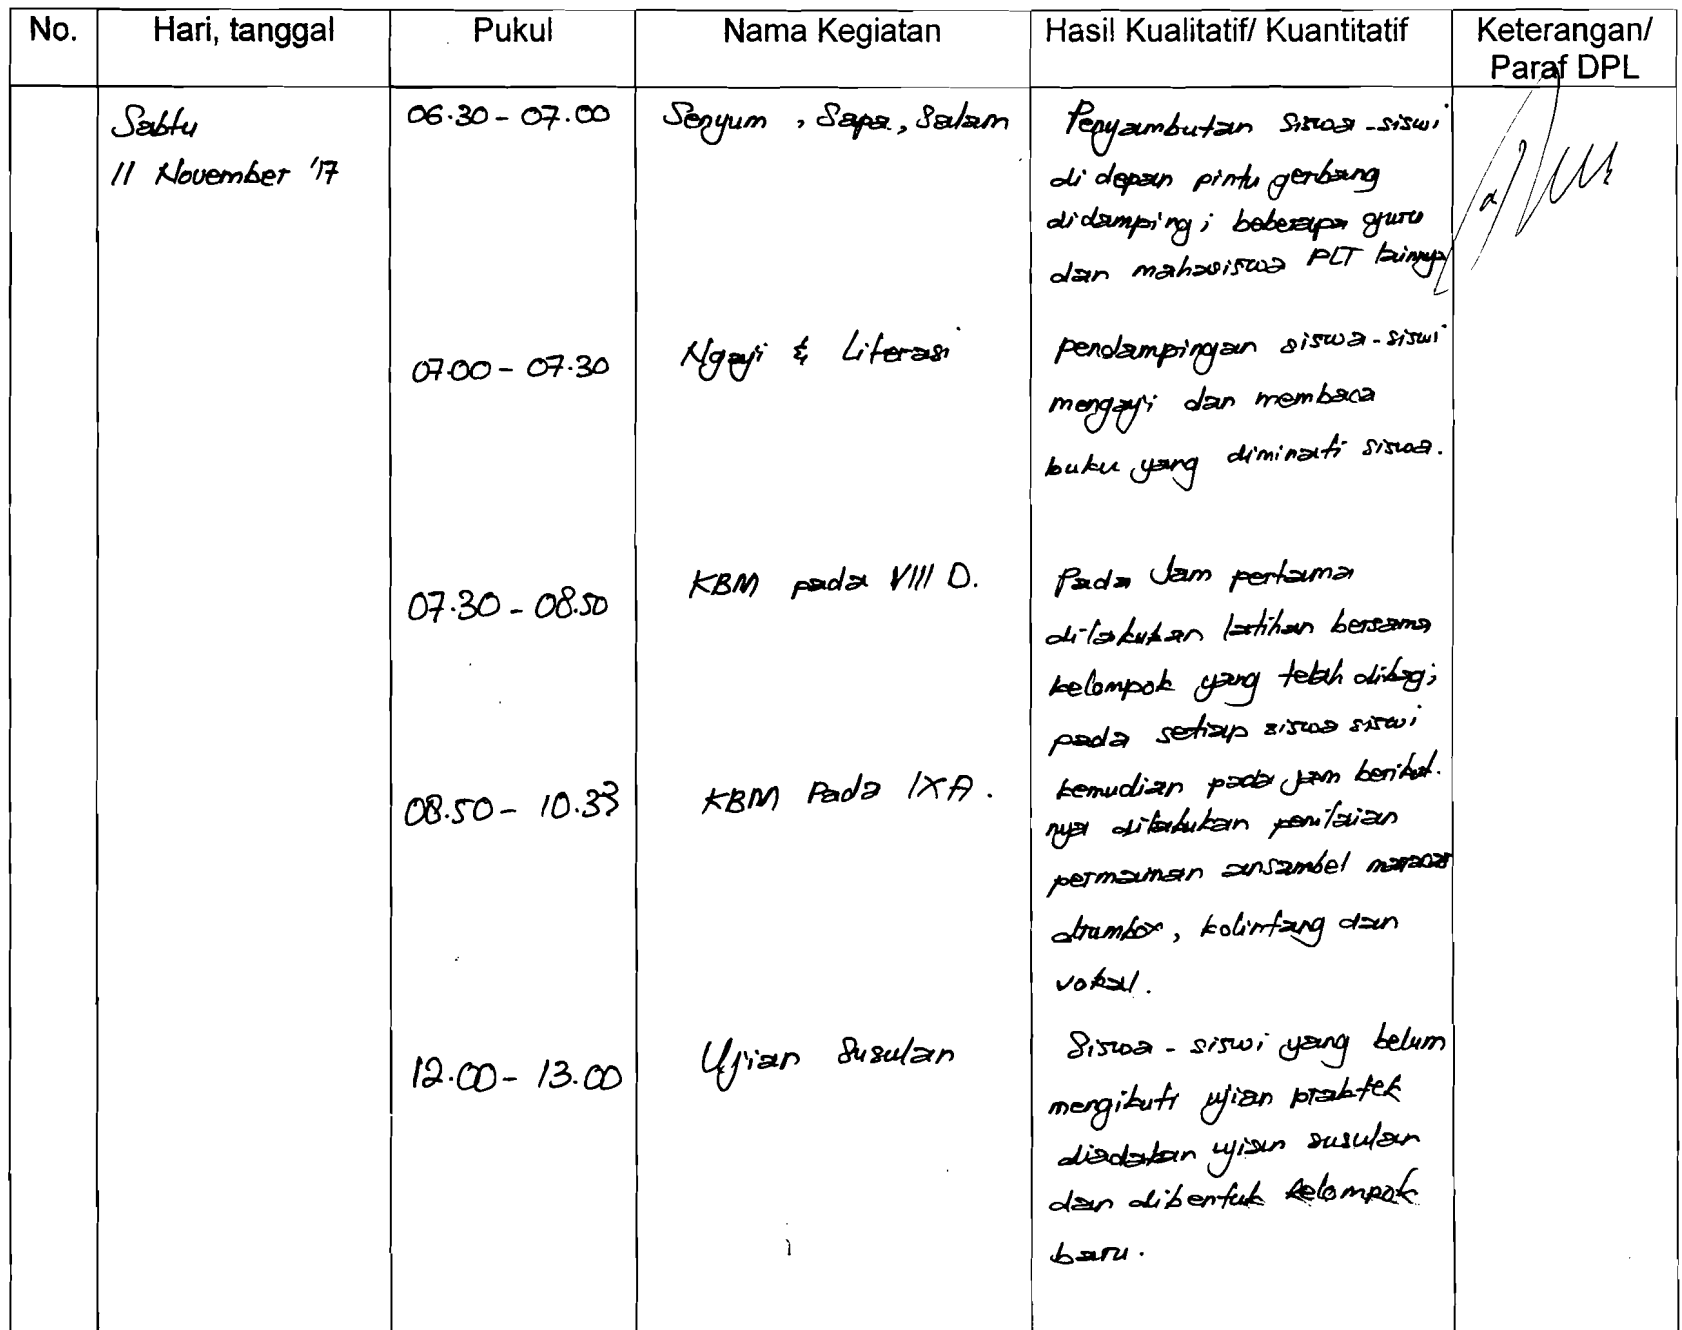 No. Hari, tanggal Pukul Nama Kegiatan Hasil Kualitatif/ Kuantitatif Keterangan/
Paraf DPL
Sabtu 06.30 - 07.00 Senyum, Sapa, Salam Penyambutan siswa-siswi
11 November '17 di depan pintu gerbang
didampingi beberapa guru
dan mahasiswa PLT lainnya
07.00 - 07.30 Ngaji & Literasi pendampingan siswa-siswi
mengaji dan membaca
buku yang diminati siswa.
07.30 - 08.50 KBM pada VIII D. Pada Jam pertama
dilakukan latihan bersama
kelompok yang telah dibagi
pada setiap siswa siswi
08.50 - 10.33 KBM Pada IX A. kemudian pada jam berikut.
nya dilakukan penilaian
permainan ansambel
, kolintang dan
vokal.
12.00 - 13.00 Ujian Susulan Siswa - siswi yang belum
mengikuti ujian praktek
diadakan ujian susulan
dan dibentuk kelompok
baru.